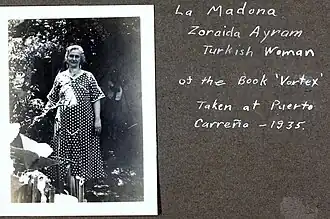 La Madona
Zoraida Ayram
Turkish Woman
of the Book 'Vortex'
Taken at Puerto
Carreño - 1935.